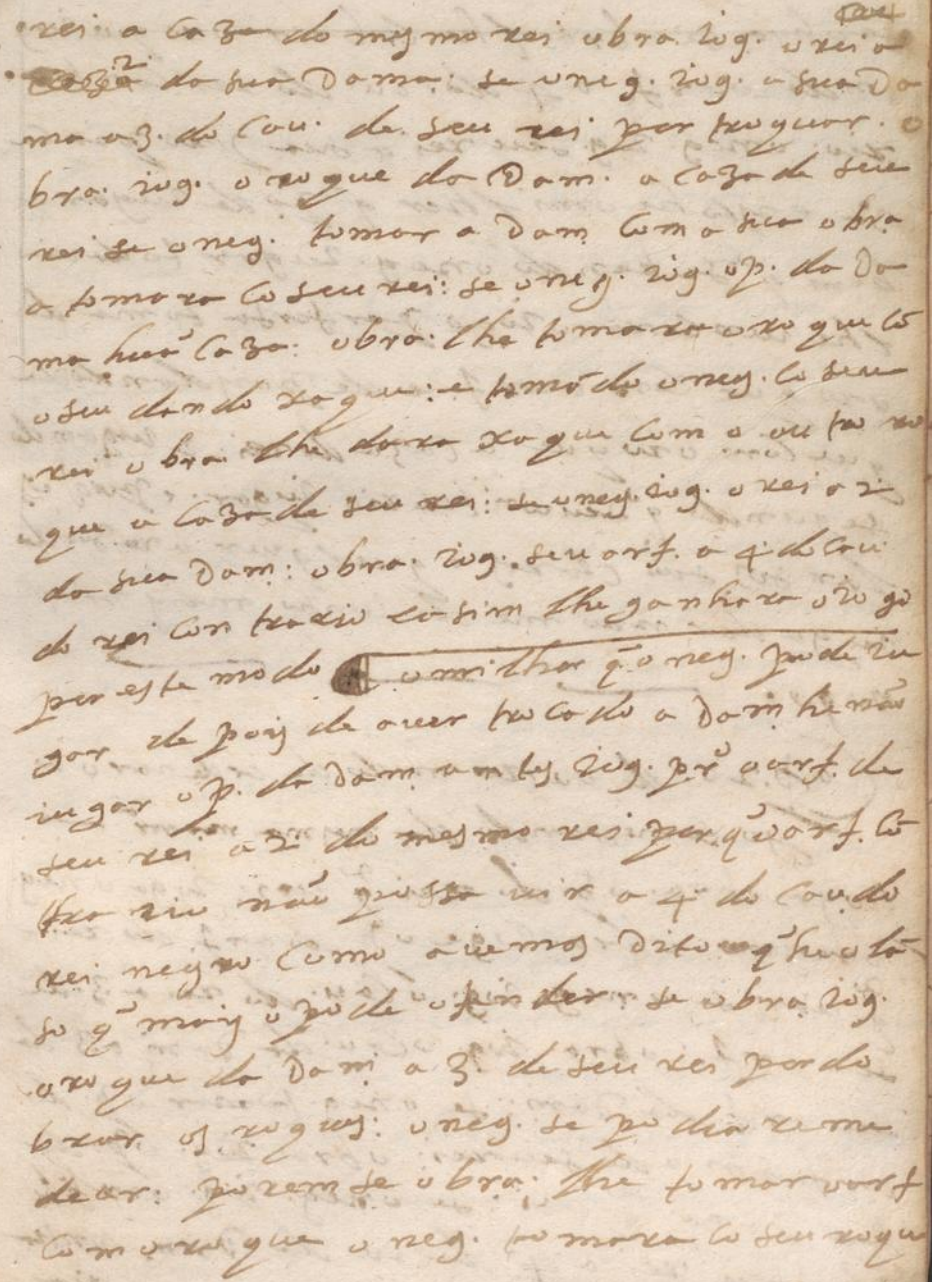 rei a caza do mesmo rei obra. iog. o rei a
2 da sua Dama. se o neg. iog. a sua Da
ma a 3. do Cau. de seu rei por troquar. o
bra. iog. o roque da Dam. a caza de seu
rei se o neg. tomar a Dam com a sua obra
a tomara co seu rei: se o neg. iog. o p. da Da
ma huã caza: obra. lhe tomara o roque cõ
o seu dando xaque: e tomãdo o neg. co seu
rei o bra. lhe dara xaque com o outro ro
que a caza de seu rei: se o neg. iog. o rei a 2
da sua Dam: obra. iog. seu arf. a 4. do Cau.
do rei contrario e asim lhe ganhara o iogo
por este modo o milhor q̃ o neg. pode iu
gar de pois de auer trocado a Dam he não
iugar o p. da Dam antes iog. prº o arf. de
seu rei a 2. do mesmo rei porq̃ o arf. cõ
trario não possa uir a 4. do Cau. do
rei negro como auemos Dito q̃ he o lã
so q̃ mais o pode ofender se obra iog.
o roque da Dam a 3. de seu rei por do
brar os roques. o neg. se podia reme
dear. porem se obra. lhe tomar o arf
com o roque o neg. tomara co seu roque